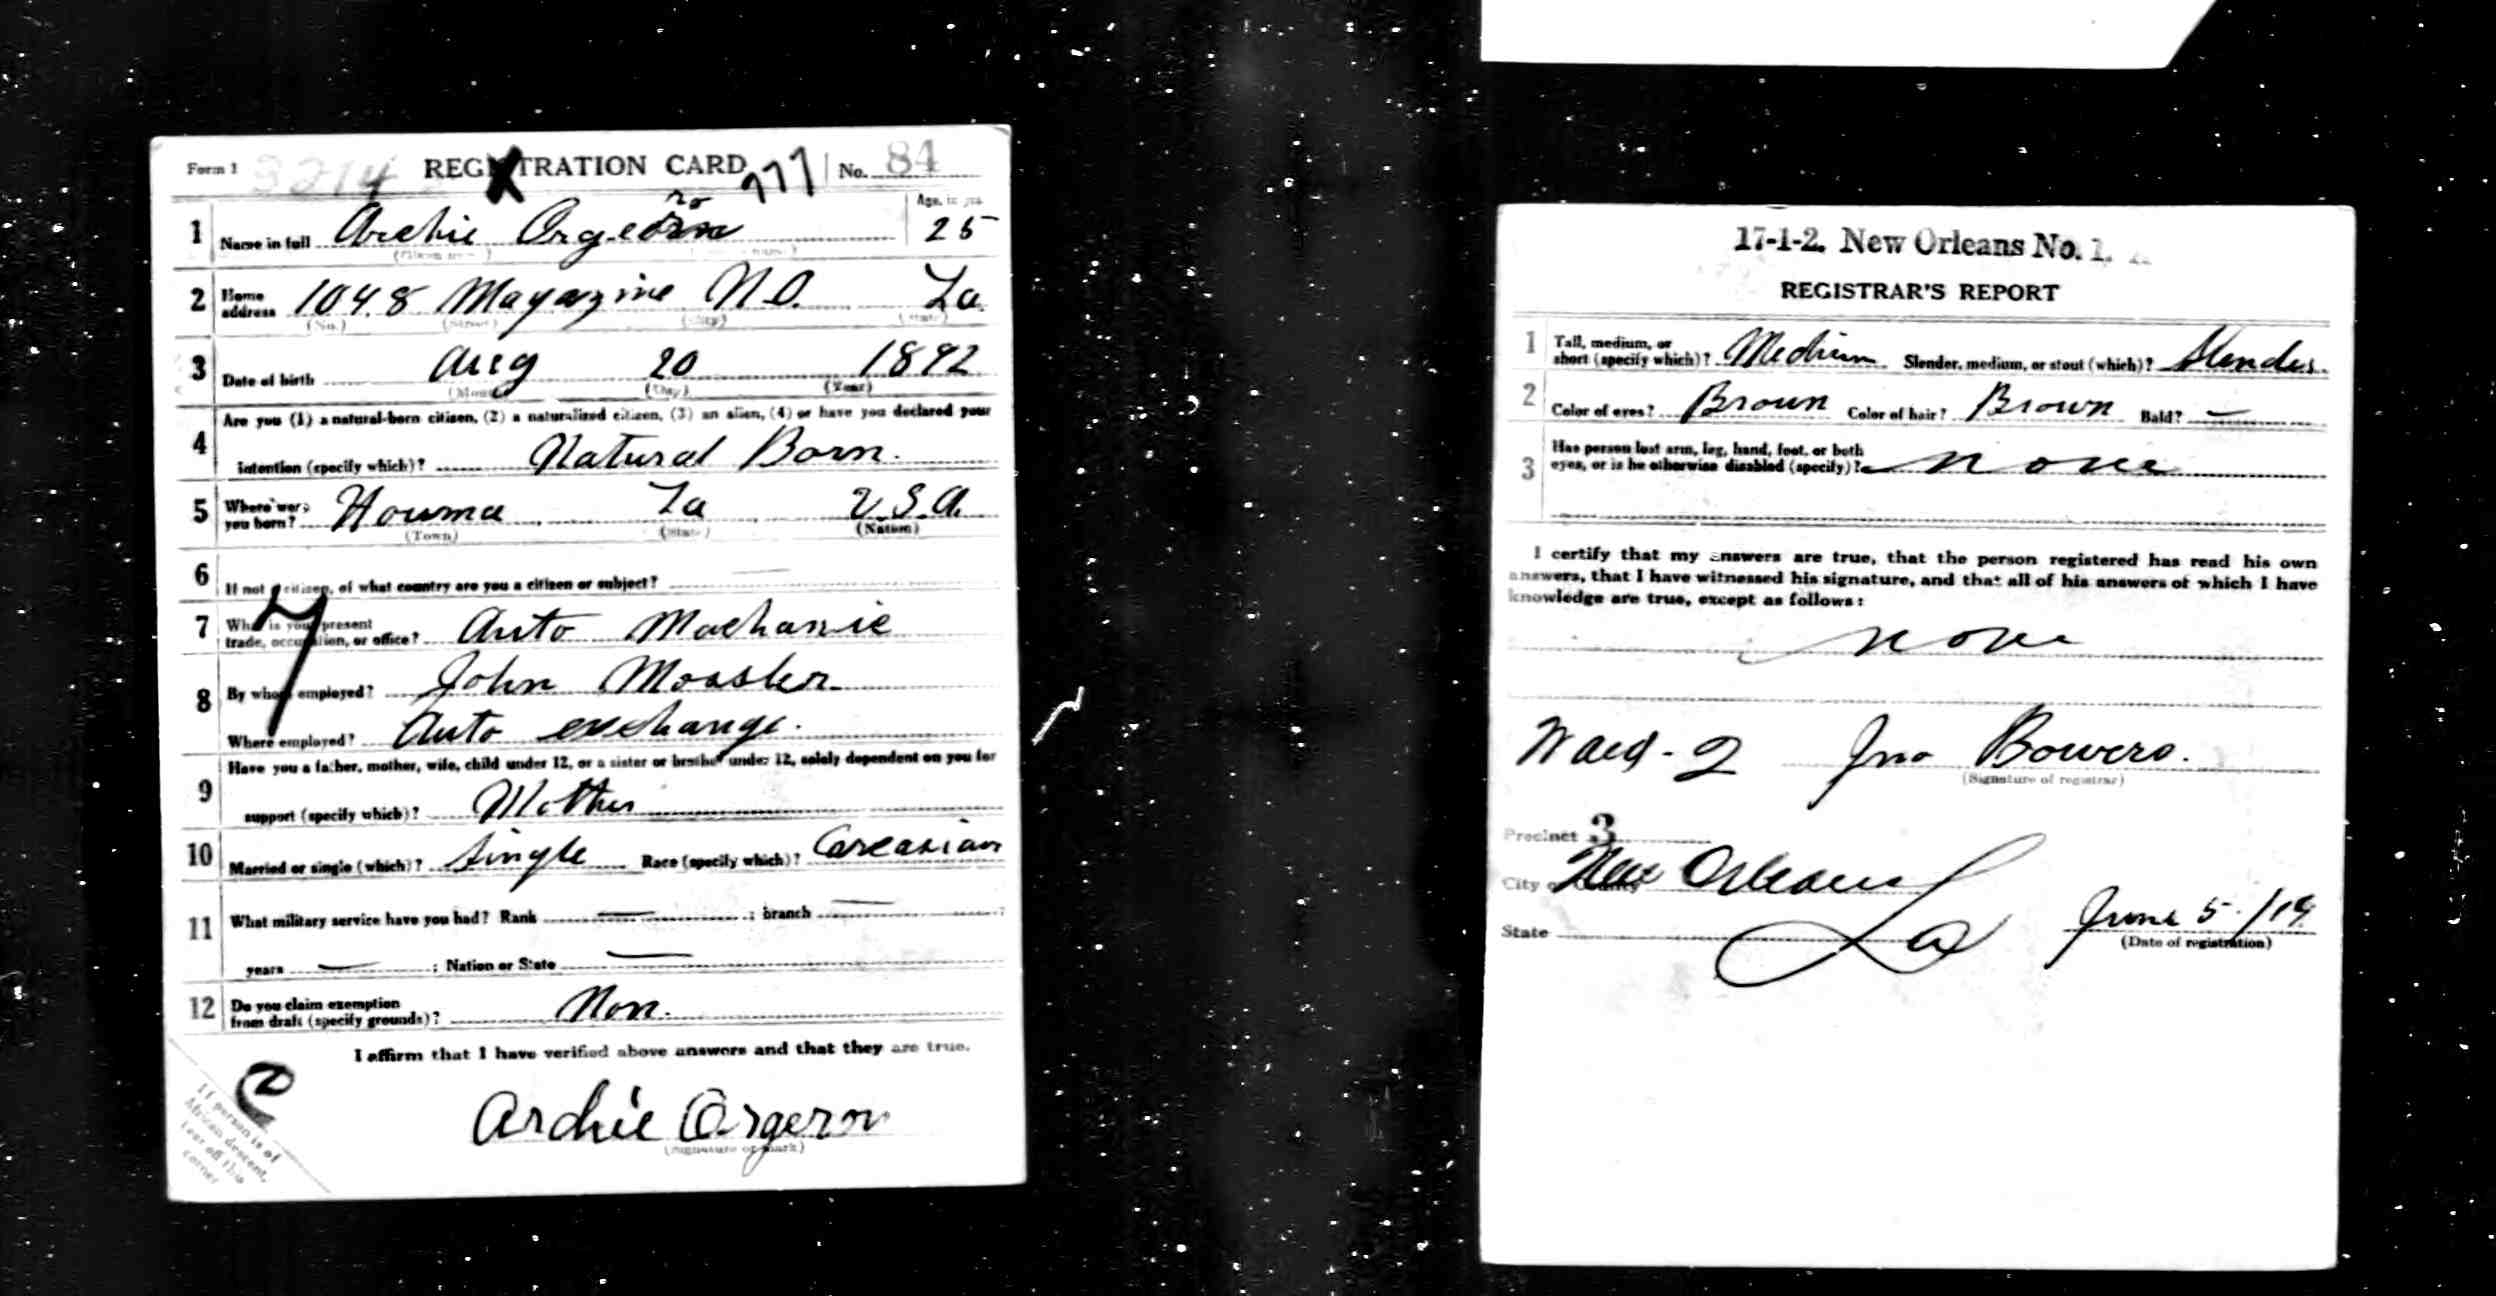 Form 1 3214 REGISTRATION CARD 777 No. 84
1 Name in full Archie Orgeron ro Age, in yrs. 25
2 Home address 1048 Magazine N.O. La.
(No.) (Street) (City) (State)
3 Date of birth Aug 20 1892
(Month) (Day) (Year)
Are you (1) a natural-born citizen, (2) a naturalized citizen, (3) an alien, (4) or have you declared your
4 intention (specify which)? Natural Born.
5 Where were you born? Houma La U.S.A.
(Town) (State) (Nation)
6 If not a citizen, of what country are you a citizen or subject? —
7 What is your present
trade, occupation, or office? Auto Machanic
8 By whom employed? John
Where employed? Auto exchange.
Have you a father, mother, wife, child under 12, or a sister or brother under 12, solely dependent on you for
9 support (specify which)? Mother
10 Married or single (which)? Single Race (specify which)? Carcasian
11 What military service have you had? Rank — ; branch —
years — ; Nation or State —
12 Do you claim exemption
from draft (specify grounds)? Non.
I affirm that I have verified above answers and that they are true.
Archie Orgeron
(Signature or mark)
If person is of
African descent,
tear off this
corner
17-1-2. New Orleans No. 1.
REGISTRAR'S REPORT
1 Tall, medium, or
short (specify which)? Medium Slender, medium, or stout (which)? Slender
2 Color of eyes? Brown Color of hair? Brown Bald? —
3 Has person lost arm, leg, hand, foot, or both
eyes, or is he otherwise disabled (specify)? None
I certify that my answers are true, that the person registered has read his own
answers, that I have witnessed his signature, and that all of his answers of which I have
knowledge are true, except as follows:
None
Ward-2 Jno Bowers.
(Signature of registrar)
Precinct 3
City or County New Orleans
State La June 5/19
(Date of registration)